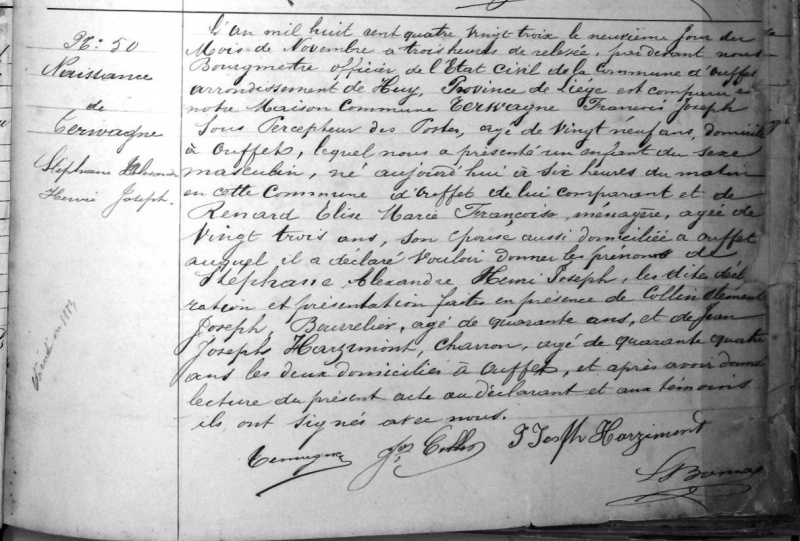 N° 50
Naissance
de
Terwagne
Stéphane Alexandre
Henri Joseph.
L'an mil huit cent quatre vingt trois le neuvième jour du
Mois de Novembre a trois heures de relevée, pardevant nous
Bourgmestre officier de l'Etat Civil de la Commune d'Ouffet
arrondissement de Huy, Province de Liége est comparu en
notre Maison Commune Terwagne François Joseph
Sous Percepteur des Postes, agé de vingt neuf ans, domicilié
à Ouffet, lequel nous a présenté un enfant du sexe
masculin, né aujourd'hui à six heures du matin
en cette Commune d'Ouffet de lui comparant et de
Renard Elise Marie Françoise, ménagère, agée de
Vingt trois ans, son épouse aussi domiciliée a Ouffet
auquel il a déclaré vouloir donner les prénoms de
Stéphane, Alexandre, Henri Joseph, les dites décl
ration et présentation faites en présence de Collin Clément
Joseph, Bourrelier, agé de quarante ans, et de Jean
Joseph Harzimont, Charron, agé de quarante quatre
ans les deux domiciliés à Ouffet, et après avoir donné
lecture du présent acte au déclarant et aux témoins
ils ont signés avec nous.
Terwagne Jos Collin J Joseph Harzimont